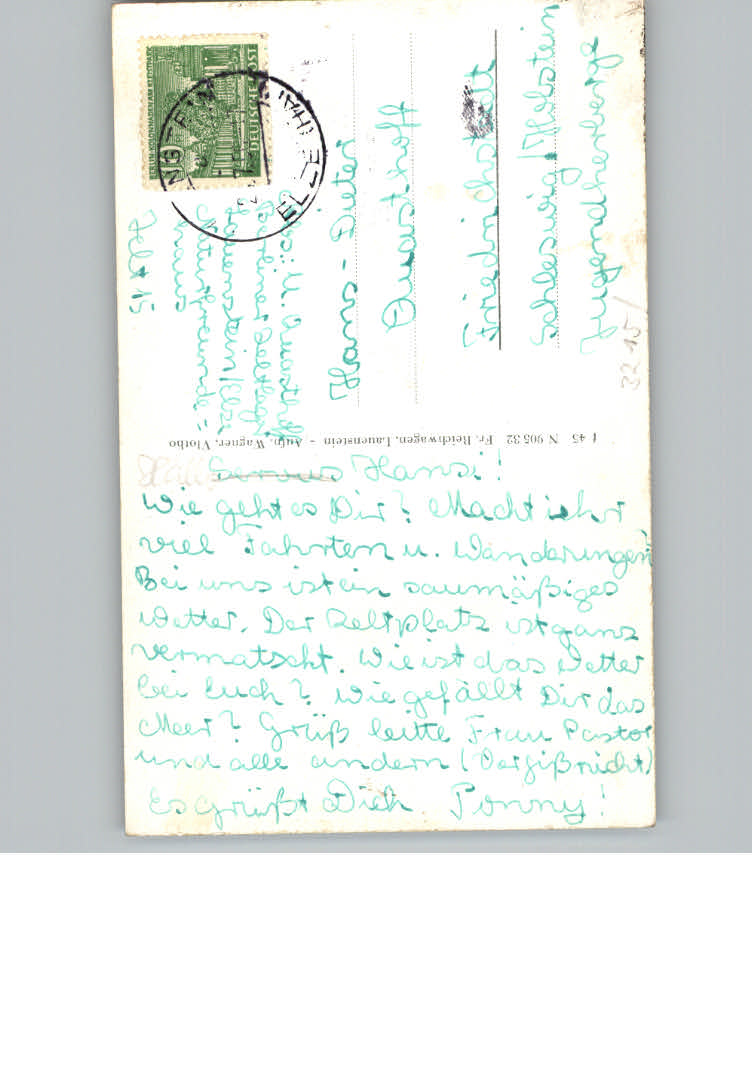 Servus Hansi!
Wie geht es Dir? Macht ihr
viel Fahrten u. Wanderungen?
Bei uns ist ein saumäßiges
Wetter. Der Zeltplatz ist ganz
vermatscht. Wie ist das Wetter
bei Euch? Wie gefällt Dir das
Meer? Grüß bitte Frau Pastor
und alle andern (Vergiß nicht)
Es grüßt Dich Ponny!
Fr. Reichwagen, Lauenstein - Aufn. Wagner, Vlotho
ł 45 N 905 32
Abs: U. Quasthoff
Berliner Zeltlager
Lauenstein/Elze
Naturfreunde=
haus
Zelt 15
Hans-Dieter
Quasthoff
Friedrichstadt
Schleswig/Holstein
Jugendherberge
DEUTSCHE POST
10
3215/